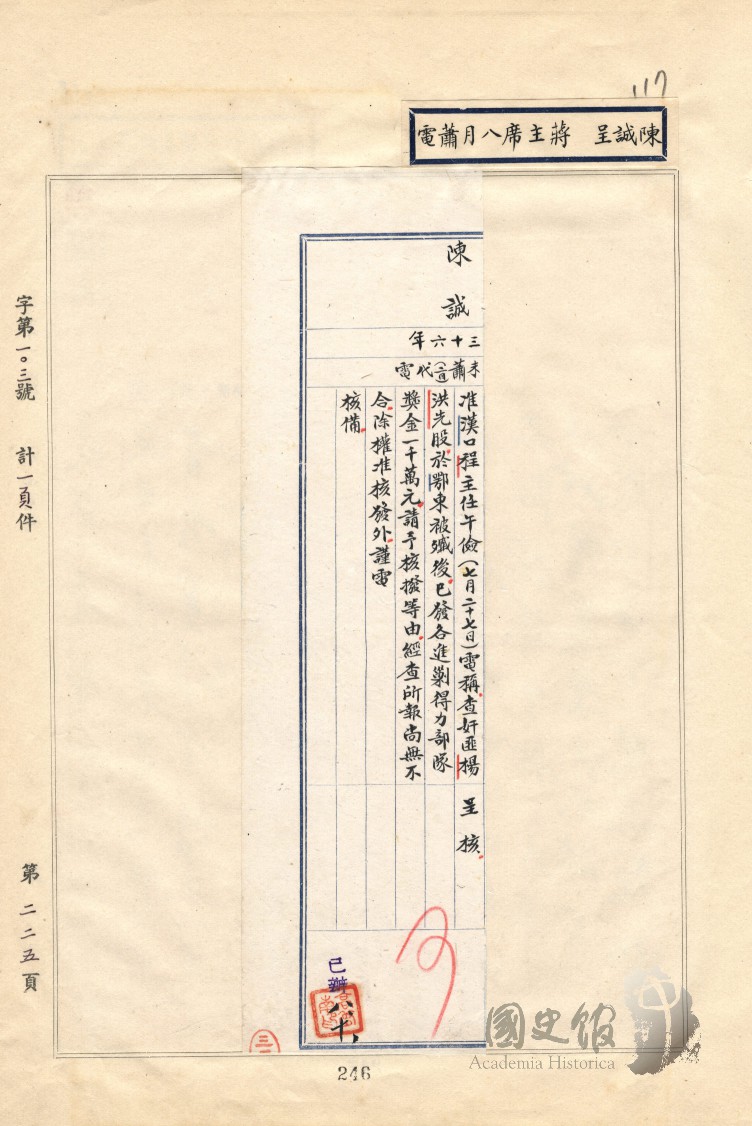 117
陳誠呈　蔣主席八月蕭電
陳誠
三十六年
未蕭(一直)代電
准漢口程主任午儉(七月二十七日)電稱查奸匪楊
洪先股於鄂東被殲後已發各進剿得力部隊
獎金一千萬元請予核撥等由經查所報尚無不
合除權准核發外謹電
核備
呈核
已辦
八十
字第一〇三號　計一頁件
第二二五頁
246
國史館
Academia Historica